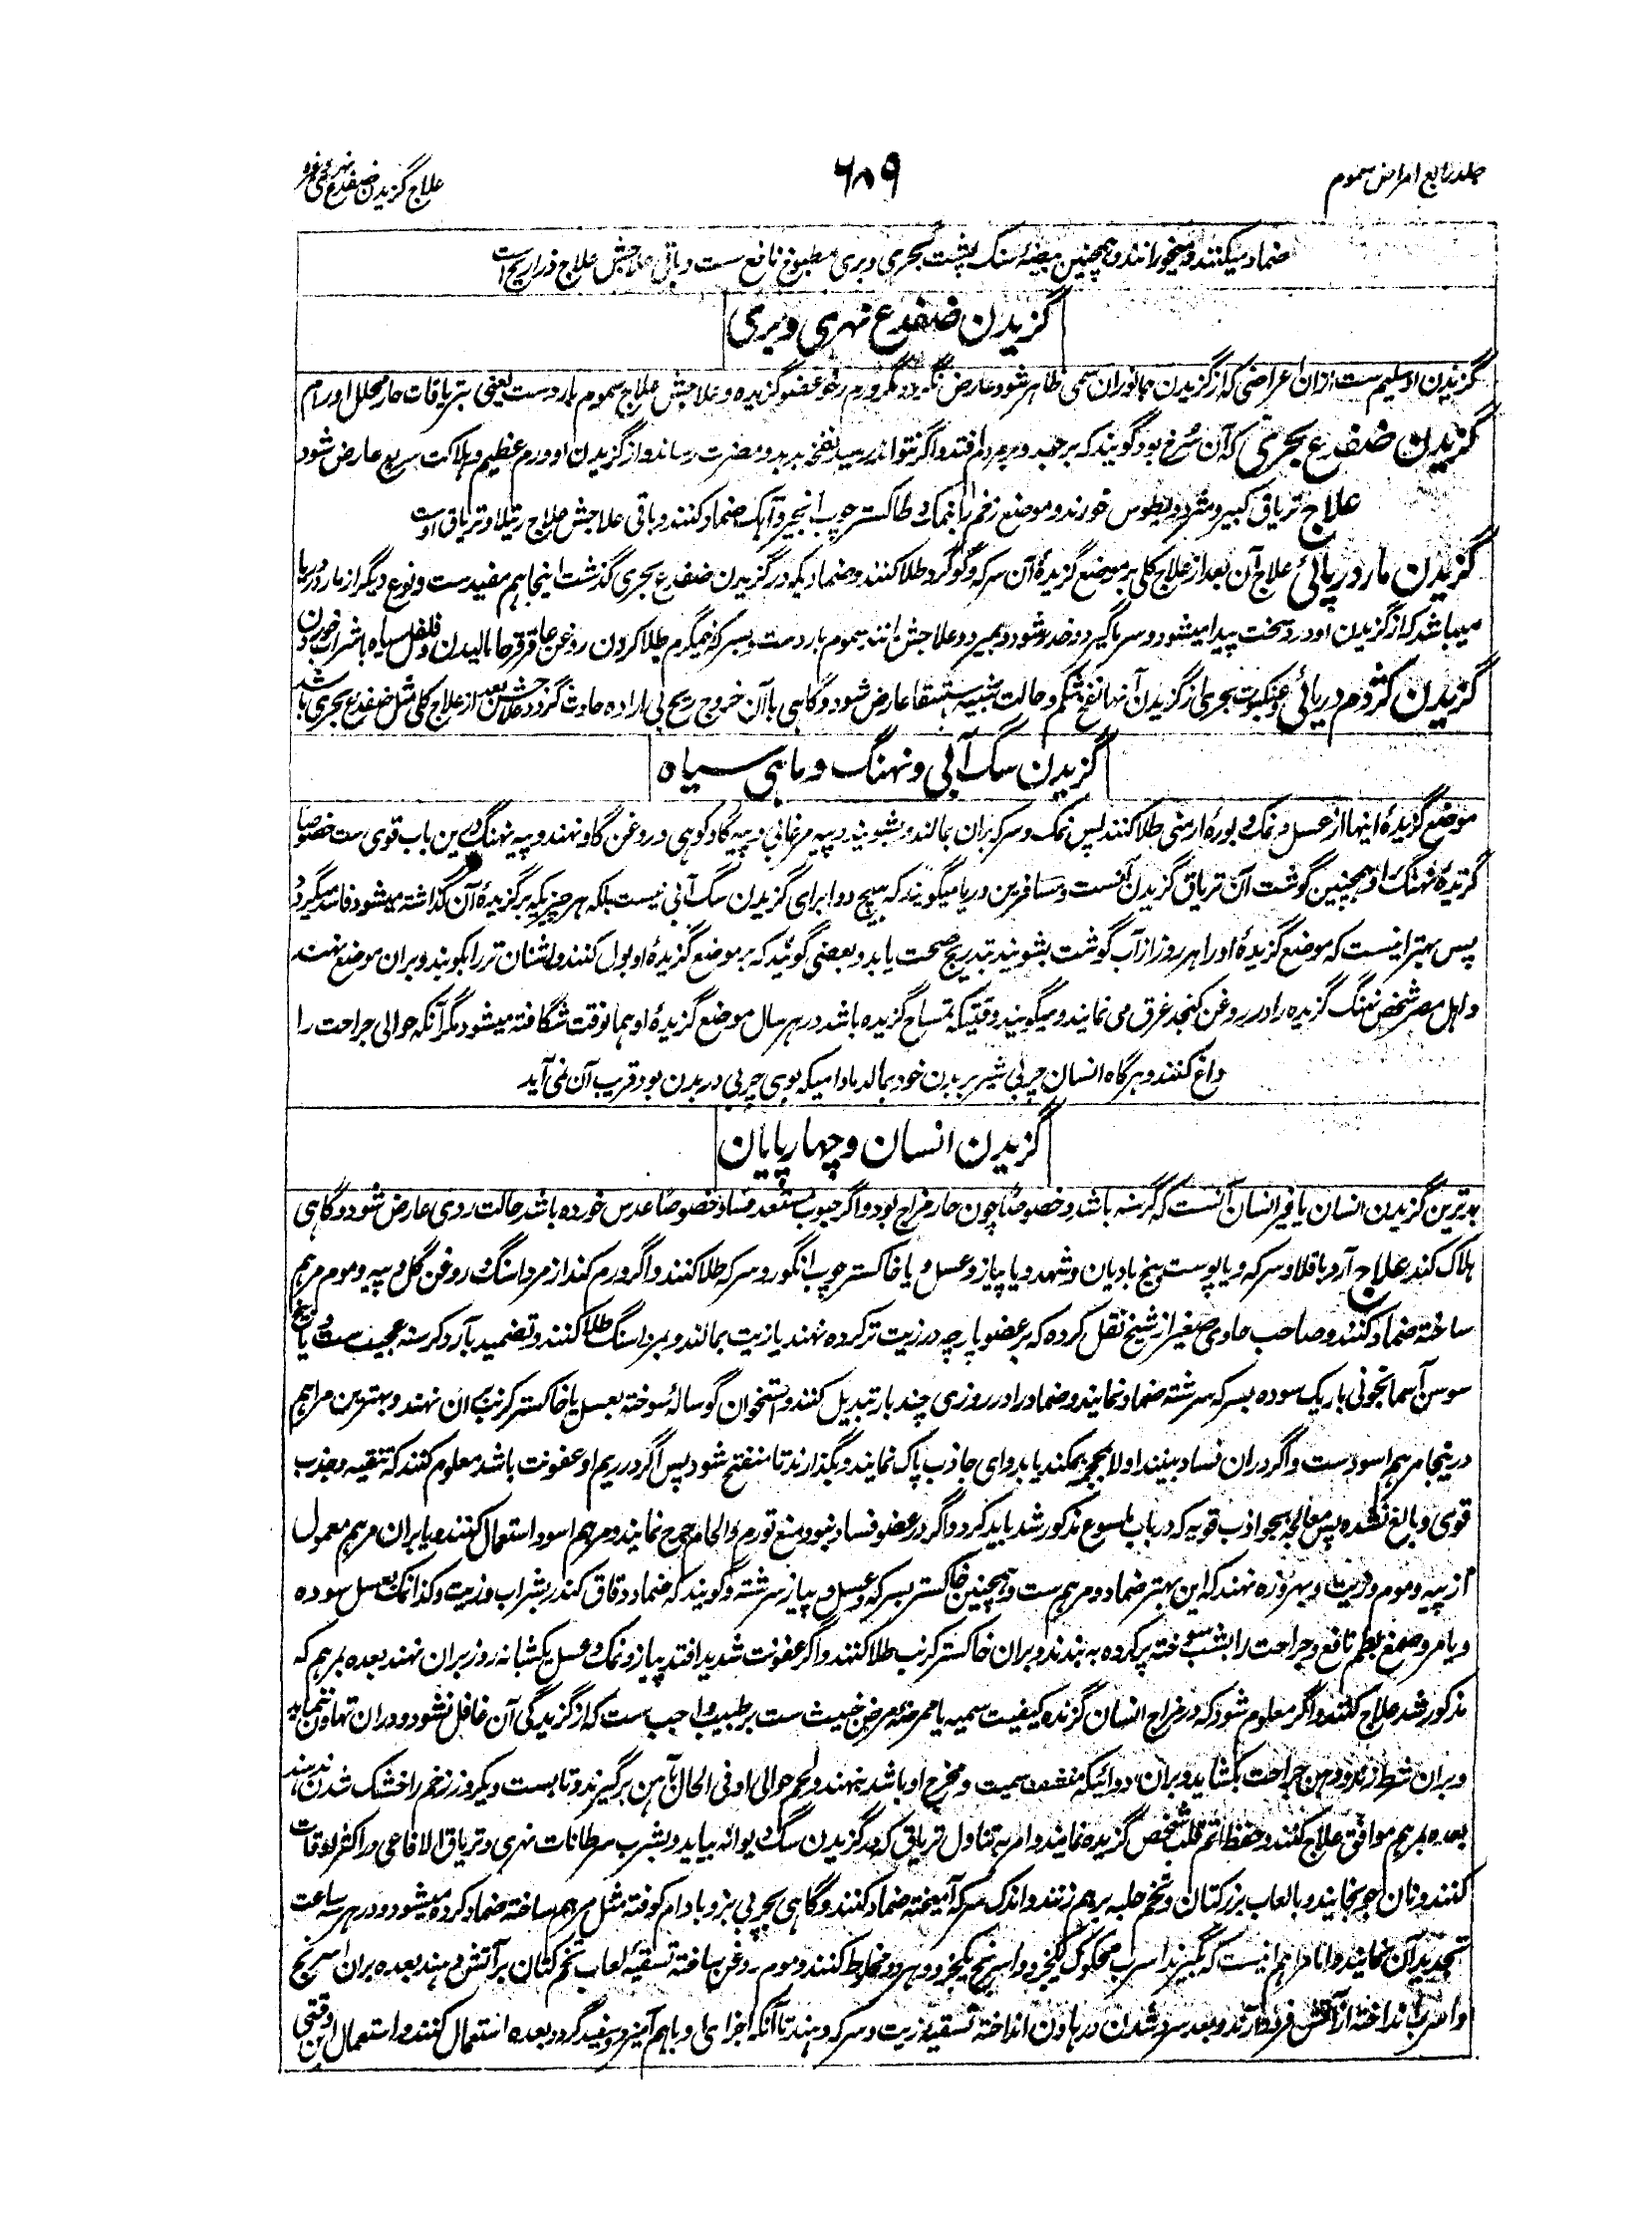 جلد رابع امراض سموم
۶۸۹
علاج گزیدن ضفدع نهری وغیره
ضماد میکنند و میخورانند و همچنین بیضهٔ سنگ پشت بحری و بری مطبوخ نافع ست و باقی علاجش علاج ذراریح است
گزیدن ضفدع نهری و بری
گزیدن او سلیم ست ازان اعراضی که از گزیدن جانوران سمی ظاهر شود عارض نگردد مگر ورم رخو عضو گزیده و علاجش علاج سموم بارد ست یعنی بتریاقات حار محلل اورام
گزیدن ضفدع بحری که آن سرخ بود گویند که برجهد و بر مردم افتد و اگر نتواند رسید نفخه بدهد و مضرت رساند و از گزیدن او ورم عظیم و هلاکت سریع عارض شود
علاج تریاق کبیر و مثرودیطوس خورند و موضع زخم را بنمک و خاکستر چوب انجیر و آهک ضماد کنند و باقی علاجش علاج رتیلا و تریاق اوست
گزیدن مار دریائی علاج آن بعد از علاج کلی بر موضع گزیدهٔ آن سرکه و گوگرد طلا کنند و ضمادیکه در گزیدن ضفدع بحری گذشت اینجا هم مفید ست و نوع دیگر از مار دریا
میباشد که از گزیدن او درد سخت پیدا میشود و سرما گیرد و خدر شود و بمیرد و علاجش مانند سموم بارد ست و بسرکه نیمگرم طلا کردن روغن عاقرقرحا مالیدن و فلفل سیاه باشراب خوردن
گزیدن کژدم دریائی و عنکبوت بحری از گزیدن آنها نفخ شکم و حالت شبیه باستسقا عارض شود و گاهی با آن خروج ریح بی اراده حادث گردد علاجش بعد از علاج کلی مثل ضفدع بحری باشد
گزیدن سگ آبی و نهنگ و ماهی سیاه
موضع گزیدهٔ اینها از عسل و نمک و بورهٔ ارمنی طلا کنند پس نمک و سرکه بران بمالند و بشویند و پیه مرغابی و پیه گاو کوهی و روغن گاو نهند و پیه نهنگ درین باب قوی ست خصوصا
گزیدهٔ نهنگ را و همچنین گوشت آن تریاق گزیدن آنست و مسافرین دریا میگویند که هیچ دوا برای گزیدن سگ آبی نیست بلکه هر چیزیکه بر گزیدهٔ آن گذاشته میشود فاسد میگردد
پس بهتر اینست که موضع گزیدهٔ او را هر روز از آب گوشت بشویند بتدریج صحت یابد و بعضی گویند که بر موضع گزیدهٔ او بول کنند و اشنان تر را بکوبند و بران موضع نهند
و اهل مصر شخص نهنگ گزیده را در روغن کنجد غرق می نمایند و میگویند وقتیکه تمساح گزیده باشد در هر سال موضع گزیدهٔ او همانوقت شگافته میشود مگر آنکه حوالی جراحت را
داغ کنند و هرگاه انسان چربی شیر بر بدن خود بمالد مادامیکه بوی چربی در بدن بود قریب آن نمی آید
گزیدن انسان و چهارپایان
بدترین گزیدن انسان یا غیر انسان آنست که گرسنه باشد و خصوصاً چون حار مزاج بود و اگر حبوب مستعد فساد خصوصاً عدس خورده باشد حالت ردی عارض شود و گاهی
هلاک کند علاج آرد باقلا و سرکه و یا پوست بیخ بادیان و شهد و یا پیاز و عسل و یا خاکستر چوب انگور و سرکه طلا کنند و اگر ورم کند از مرداسنگ و روغن گل و پیه و موم مرهم
ساخته ضماد کنند و صاحب حاوی صغیر از شیخ نقل کرده که بر عضو پارچه در زیت تر کرده نهند یا زیت بمالند و بمرداسنگ طلا کنند و تضمید بآرد کرسنه عجیب ست و یا بیخ
سوسن آسمانجونی باریک سوده بسرکه سرشته ضماد نمایند و ضماد را در روزی چند بار تبدیل کنند و استخوان گوسالهٔ سوخته بعسل یا خاکستر کرنب بران نهند و بهترین مراهم
درینجا مرهم اسود ست و اگر دران فساد بینند اولا بمحجمه بمکند یا بدوای جاذب پاک نمایند و بگذارند تا منفتح شود پس اگر در ریم او عفونت باشد معلوم کنند که تنقیه و جذب
قوی و بالغ نشده پس معالجه بجواذب قویه که در باب ملسوع مذکور شد باید کرد و اگر در عضو فساد نبود منع تورم و الحام جرح نمایند و مرهم اسود استعمال کنند و یا بران مرهم معمول
از پیه و موم و زیت و بهروزه نهند که این بهتر ضماد و مرهم ست و همچنین خاکستر بسرکه و عسل و پیاز سرشته و گویند که ضماد دقاق کندر بشراب و زیت و کذا نمک بعسل سوده
و یا مر و صمغ بطم نافع و جراحت را بشب سوخته پر کرده به بندند و بران خاکستر کرنب طلا کنند و اگر عفونت شدید افتد پیاز و نمک و عسل یکشبانه روز بران نهند بعده بمرهم که
مذکور شد علاج کنند و اگر معلوم شود که در مزاج انسان گزنده کیفیت سمیه یا مرض خبیث ست بر طبیب واجب ست که از گزیدگی آن غافل نشود و دران تهاون ننماید
و بران شرط زند و دهن جراحت بکشاید و بران دوائیکه سمیت و مخرج او باشد بنهند و لحم حوالی او فی الحال بآهن برگیرند و تا بست و یکروز زخم را خشک شدن ندهند
بعده بمرهم موافق علاج کنند و حفظ اتم قلب شخص گزیده نمایند و امر به تناول تریاق که در گزیدن سگ دیوانه بیاید و بشرب سرطانات نهری و تریاق الافاعی در اکثر اوقات
کنند و نان جو بخایند و بالعاب بزرکتان و تخم حلبه برهم زنند و اندک سرکه آمیخته ضماد کنند و گاهی بچربی بز و بادام کوفته مثل مرهم ساخته ضماد کرده میشود و در هر ساعت
تجدید آن نمایند و اما مراهم اینست که بگیرند اسرب محکوک یکجزو و اسرنج یکجزو و هر دو مخلوط کنند و موم روغن ساخته تسقیهٔ لعاب تخم کتان بر آتش دهند بعده بران اسرنج
و اسرب انداخته از آتش فرود آرند و بعد سرد شدن در هاون انداخته تسقیهٔ زیت و سرکه دهند تا آنکه اجزای او باهم آمیزد و سفید گردد بعده استعمال کنند و استعمال این وقتی